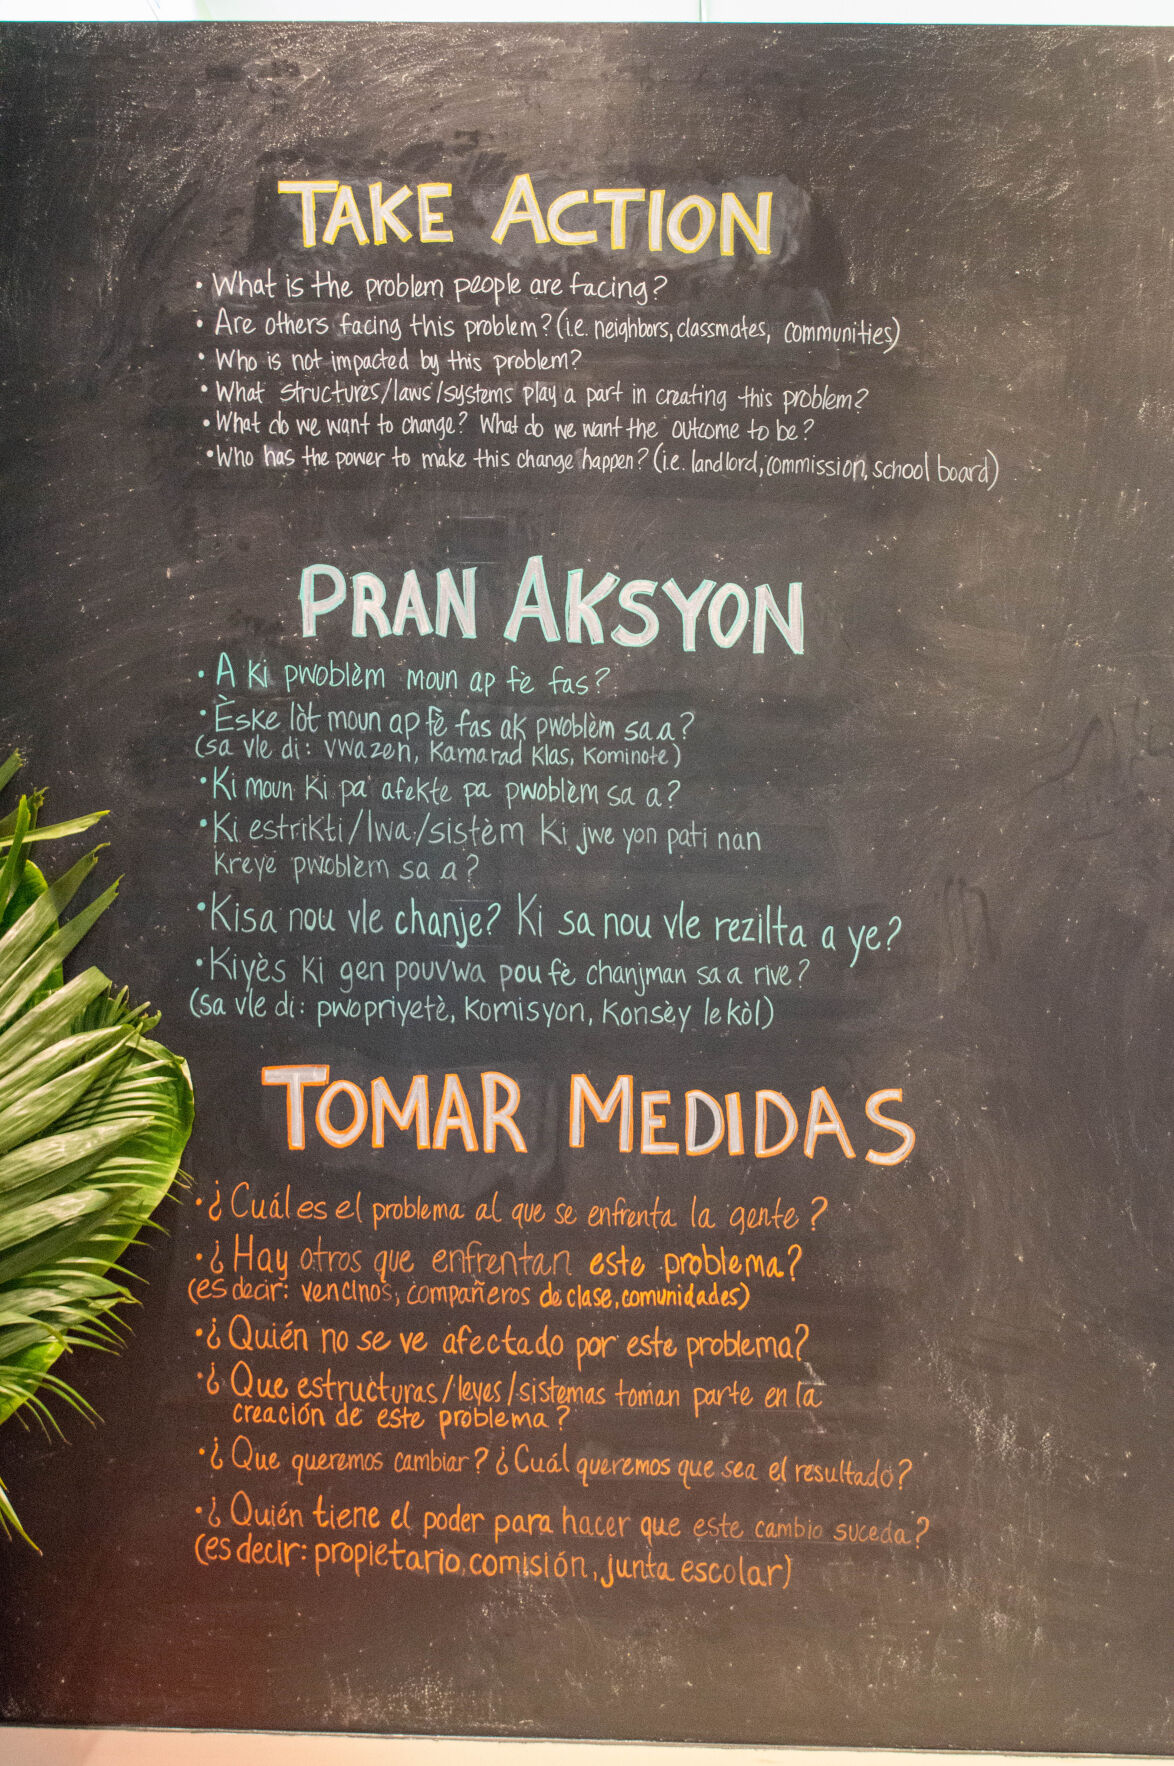 TAKE ACTION
• What is the problem people are facing?
• Are others facing this problem? (i.e. neighbors, classmates, communities)
• Who is not impacted by this problem?
• What structures/laws/systems play a part in creating this problem?
• What do we want to change? What do we want the outcome to be?
• Who has the power to make this change happen? (i.e. landlord, commission, school board)
PRAN AKSYON
• A ki pwoblèm moun ap fè fas?
• Èske lòt moun ap fè fas ak pwoblèm sa a?
(sa vle di: vwazen, kamarad klas, kominote)
• Ki moun ki pa afekte pa pwoblèm sa a?
• Ki estrikti/lwa/sistèm ki jwe yon pati nan
kreye pwoblèm sa a?
• Kisa nou vle chanje? Ki sa nou vle rezilta a ye?
• Kiyès ki gen pouvwa pou fè chanjman sa a rive?
(sa vle di: pwopriyetè, komisyon, konsèy lekòl)
TOMAR MEDIDAS
• ¿Cuál es el problema al que se enfrenta la gente?
• ¿Hay otros que enfrentan este problema?
(es decir: vencinos, compañeros de clase, comunidades)
• ¿Quién no se ve afectado por este problema?
• ¿Que estructuras/leyes/sistemas toman parte en la
creación de este problema?
• ¿Que queremos cambiar? ¿Cuál queremos que sea el resultado?
• ¿Quién tiene el poder para hacer que este cambio suceda?
(es decir: propietario, comisión, junta escolar)